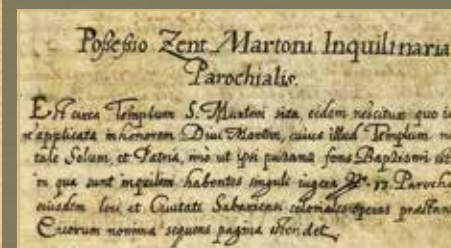 Possessio Zent Martoni Inquilinaria
Parochialis.
Est circa Templum S. Martoni sita, eidem nescitur quo iu
re applicata in honorem Divi Martini, cuius illud Templum na
tale Solum, et Patria, imo ut ipsi putant fons Baptismi est
in qua sunt inquilini habentes singuli iugera 12. Parocho
eiusdem loci et Civitati Sabariensi colonales operas praestant
Quorum nomina sequens pagina ostendet